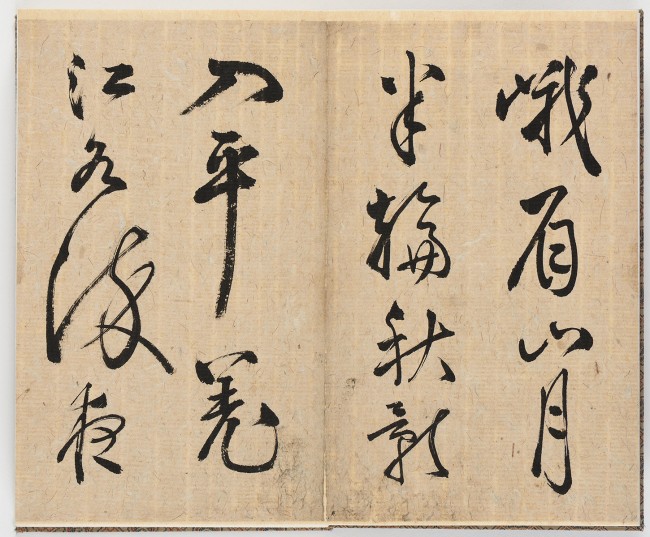 峨眉山月
半輪秋影
入平羌
江水流夜